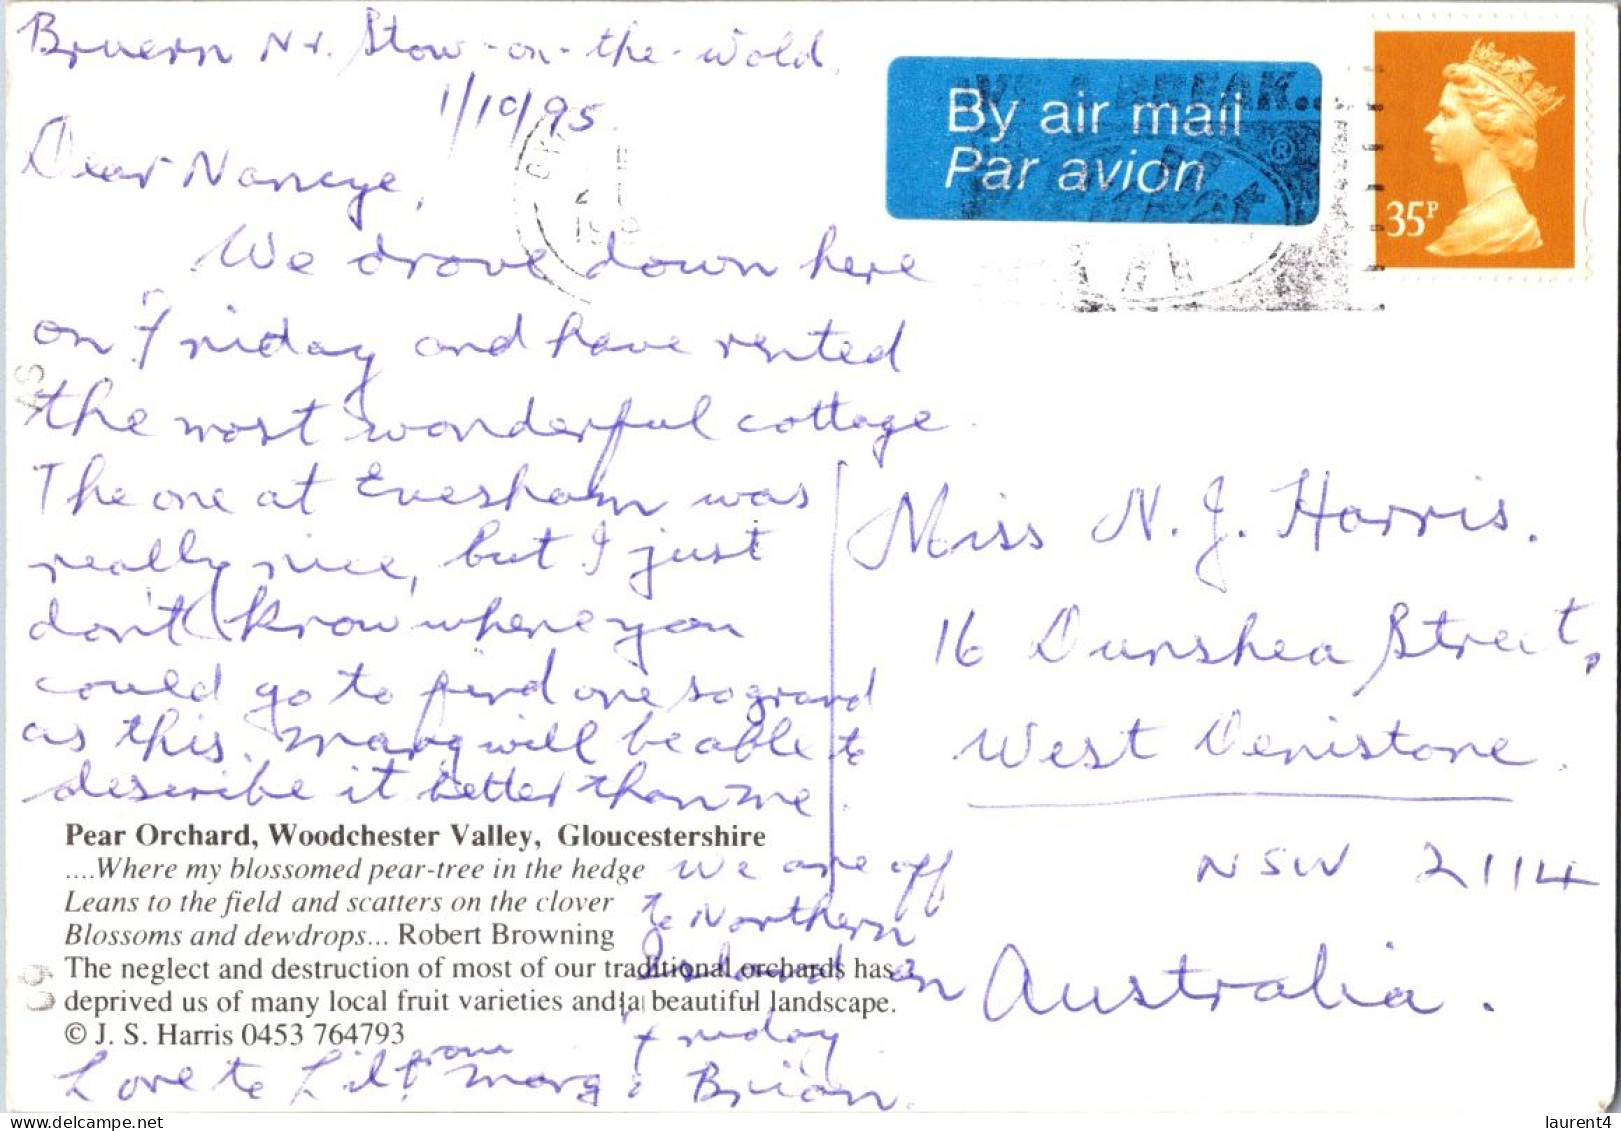 Bruern Nr. Stow-on-the-Wold.
1/10/95
Dear Nancye,
We drove down here
on Friday and have rented
the most wonderful cottage.
The one at Evesham was
really nice, but I just
don't know where you
could go to find one so grand
as this. Marg will be able to
describe it better than me.
We are off
to Northern
Island on
Friday
Love to Lil from Marg & Brian.
Pear Orchard, Woodchester Valley, Gloucestershire
....Where my blossomed pear-tree in the hedge
Leans to the field and scatters on the clover
Blossoms and dewdrops... Robert Browning
The neglect and destruction of most of our traditional orchards has
deprived us of many local fruit varieties and a beautiful landscape.
© J. S. Harris 0453 764793
By air mail
Par avion
®
35P
Miss N. J. Harris.
16 Dunshea Street,
West Denistone.
NSW 2114
Australia.
laurent4